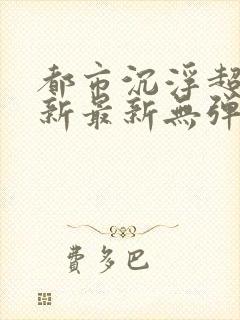 都市沉浮超
新最新無彈
費多巴